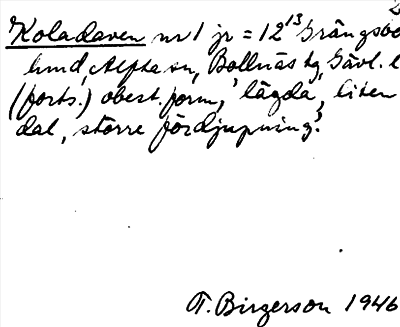 Koladaven nr 1 jr = 12 13 Grängsbo
hmd, Alfta sn, Bollnäs tg, Gävl. l
(forts.) obest. form, 'lägda, liten
dal, större fördjupning.'
T. Birgerson 1946